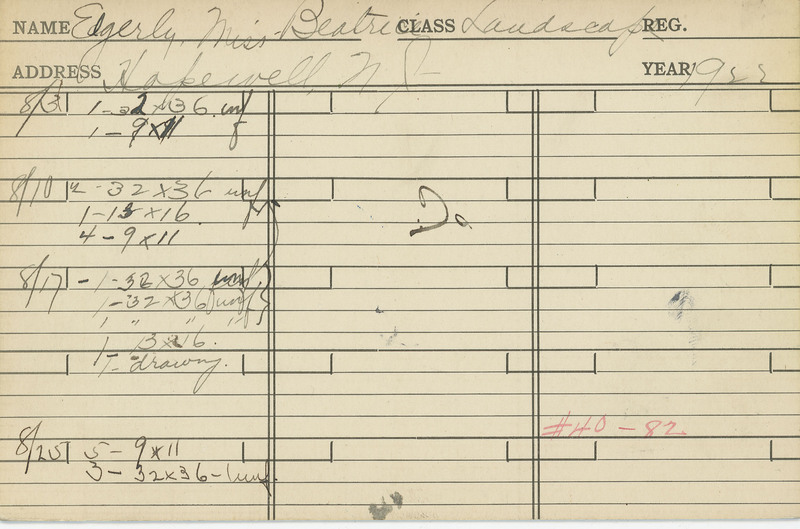 NAME Edgerly, Miss Beatrice CLASS Landscape REG.
ADDRESS Hopewell, N. J. YEAR 1922
8/3 1-32x36 unf
1-9x11
8/10 2-32x36 unf
1-13x16
4-9x11
8/17 -1-32x36 unf
1-32x36 unf
1 " " "
1 13x16.
1-drawing.
8/25 5-9x11
3-32x36-1 unf.
#40-82